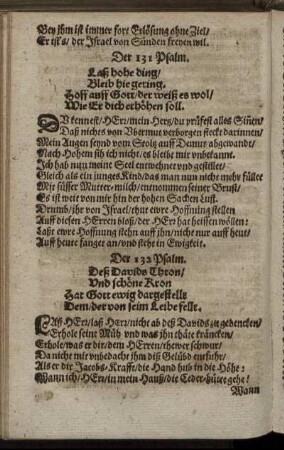 Bey jhm ist immer fort Erlösung ohne Ziel/
Er ists/ der Israel von Sünden freyen wil.
Der 131 Psalm.
Laß hohe ding/
Bleib hie gering.
Hoff auff Gott/ der weiß es wol/
Wie Er dich erhöhen soll.
DV kennest/ HErr/ mein Hertz/ du prüfest alles Sinen/
Daß nichts von Vbermut verborgen steckt darinnen/
Mein Augen seynd vom Stoltz auff Demut abgewandt/
Nach Hohem sih ich nicht/ es bleibt mir vnbekannt.
Ich hab nun meine Seel entwehnet vnd gestillet/
Gleich als ein junges Kind/ das man nun nicht mehr füllet
Mit süsser Mutter-milch/ entnommen seiner Brust/
Es ist weit von mir hin der hohen Sachen Lust.
Drumb/ jhr von Israel/ thut ewre Hoffnung stellen
Auff diesen HErren bloß/ der HErr hat heissen wöllen:
Laßt ewre Hoffnung stehn auff jhn/ nicht nur auff heut/
Auff heute fanget an/ vnd stehe in Ewigkeit.
Der 132 Psalm.
Deß Davids Thron/
Und schöne Kron
Hat Gott ewig dargestellt
Dem/ der von seim Leibe fellt.
LAß HErr/ laß Hertz/ nicht ab deß Davids zu gedencken/
Erhole seine Müh vnd was jhn thäte kräncken/
Erhole/ was er dir/ dem HErren/ thewer schwur/
Da nicht mit vnbedacht jhm diß Gelübd entfuhr/
Als er dir Jacobs-Krafft/ die Hand hub in die Höhe:
Wann ich/ HErr/ in mein Hauß/ die Ceder-hütte gehe!
Wann